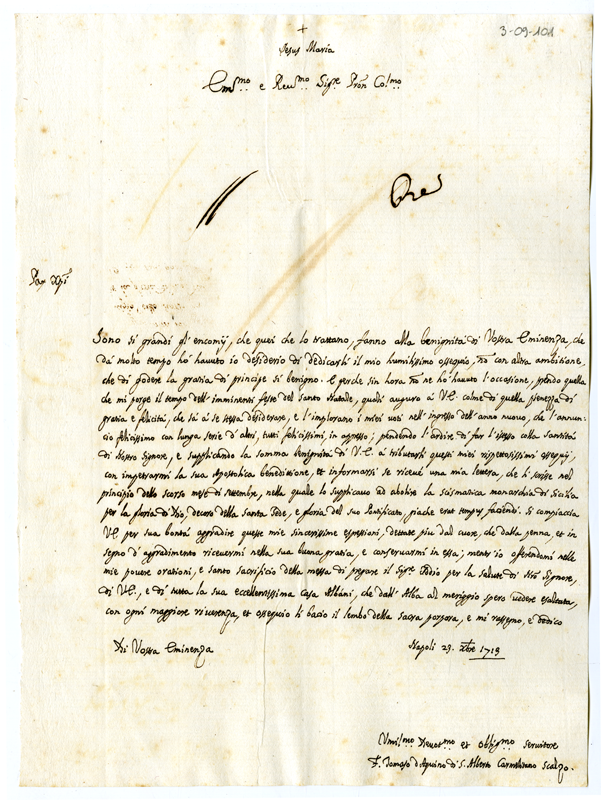 3-09-101
+
Jesus Maria
Em.mo e Reu.mo Sig.re Pron Col.mo
Pax Xpi
Sono si grandi gl'encomij, che quei che lo trattano, fanno alla benignità di Vostra Eminenza, che
da molto tempo hò hauuto io desiderio di dedicarli il mio humilissimo ossequio, nō con altra ambitione,
che di godere la gratia di Principe si benigno. E perche sin hora nō ne hò hauuto l'occasione, prendo quella
che mi porge il tempo dell'imminenti feste del Santo Natale, quali auguro à V.E. colme di quella pienezza di
gratia e felicità, che sà à se stessa desiderare, e l'implorano i miei voti nell'ingresso dell'anno nuouo, che l'annun-
cio felicissimo con lunga serie d'altri, tutti felicissimi, in appresso; prendendo l'ardire di far l'istesso alla Santità
di Nostro Signore, e supplicando la somma benignità di V.E. à tributarli questi miei rispettosissimi ossequij,
con impetrarmi la sua Apostolica beneditione, et informarsi se riceuè una mia lettera, che li scrissi nel
principio dello scorso mese di Nouembre, nella quale lo supplicauo ad abolire la scismatica monarchia di Sicilia
per la gloria di Dio, decoro della Santa Sede, e gloria del suo Pontificato, giache erat tempus faciendi. Si compiaccia
V.E. per sua bontà aggradire queste mie sincerissime espressioni, dettate più dal cuore, che dalla penna, et in
segno d'aggradimento riceuermi nella sua buona gratia, e conseruarmi in essa; mentr'io offerendomi nelle
mie pouere orationi, e santo sacrificio della messa di pregare il Sig.re Iddio per la salute di Nrō Signore,
di V.E., e di tutta la sua eccellentissima Casa Albani, che dall'Alba al meriggio spero vedere esaltata,
con ogni maggiore riuerenza, et ossequio li bacio il lembo della Sacra porpora, e mi rassegno, e dedico
Di Vostra Eminenza
Napoli 29. Xbre 1713
Umil.mo Deuot.mo et oblig.mo seruitore
F. Tomaso d'Aquino di S. Alberto Carmelitano Scalzo.